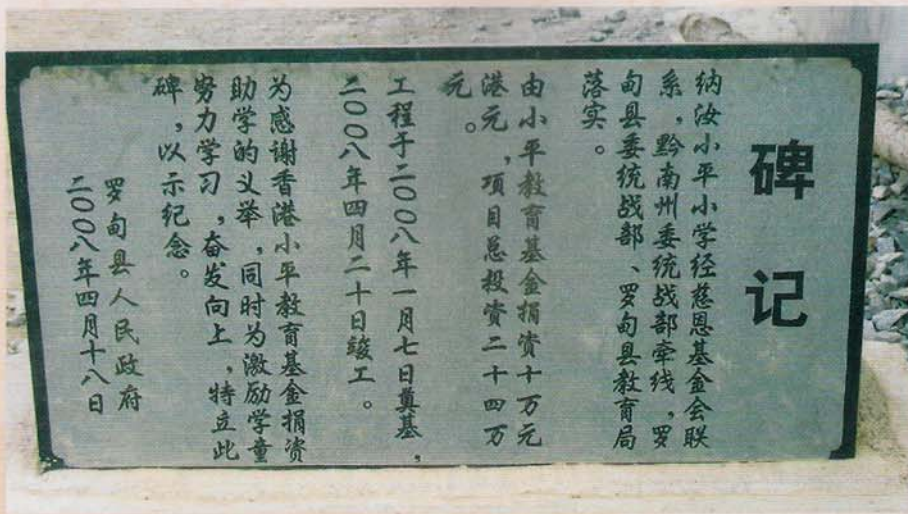 碑记
纳汝小平小学经慈恩基金会联
系，黔南州委统战部牵线，罗
甸县委统战部、罗甸县教育局
落实。
由小平教育基金捐资十万元
港元，项目总投资二十四万
元。
工程于二〇〇八年一月七日奠基，
二〇〇八年四月二十日竣工。
为感谢香港小平教育基金捐资
助学的义举，同时为激励学童
努力学习，奋发向上，特立此
碑，以示纪念。
罗甸县人民政府
二〇〇八年四月十八日